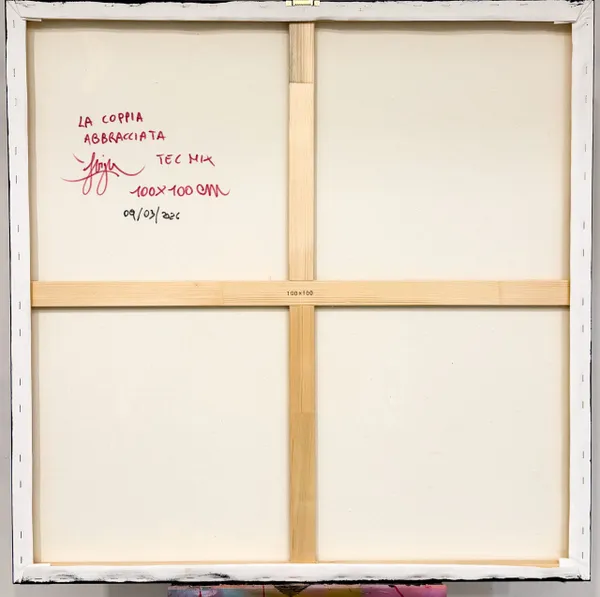 LA COPPIA
ABBRACCIATA
TEC MIX
100X100 CM
09/03/2026
100x100